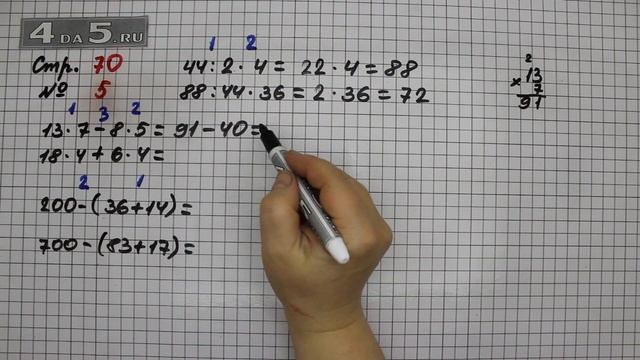 4 DA 5.RU
Стр. 70
№ 5
1 2
44 : 2 · 4 = 22 · 4 = 88
88 : 44 · 36 = 2 · 36 = 72
1 3 2
13 · 7 - 8 · 5 = 91 - 40 =
18 · 4 + 6 · 4 =
2 1
200 - (36 + 14) =
700 - (83 + 17) =
2
13
×
7
91